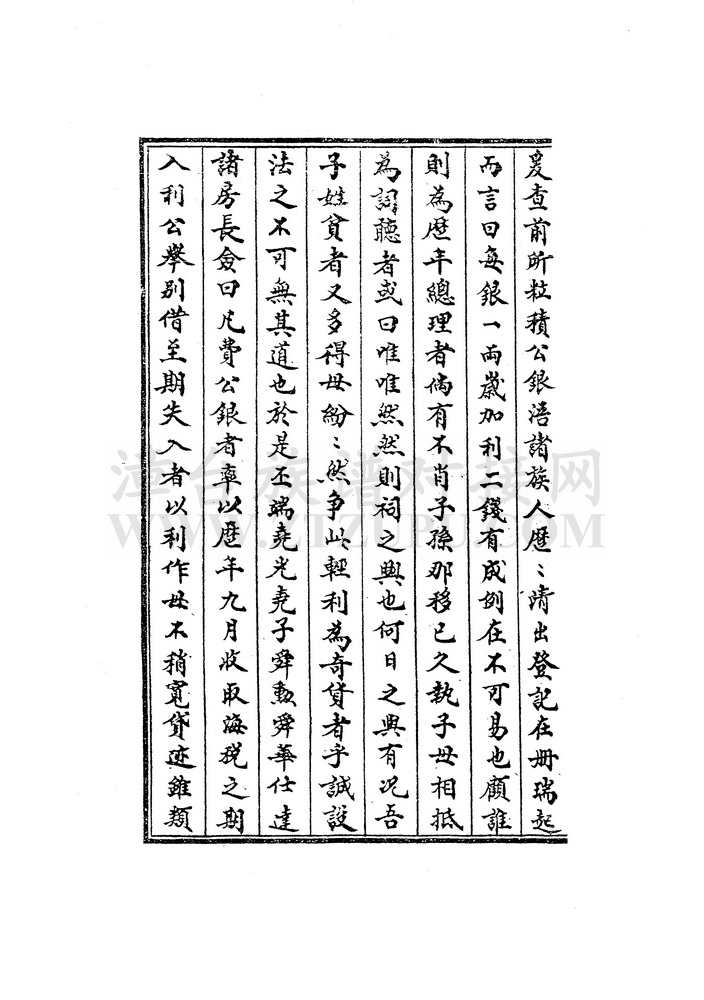 爰查前所粒積公銀浯諸族人歷〻清出登記在冊瑞起
而言曰每銀一両歲加利二錢有成例在不可易也顧誰
則為歷年總理者倘有不肖子孫那移已久執子母相抵
為詞聽者或曰唯唯然然則祠之興也何日之興有况吾
子姓貧者又多得毋紛〻然争此輕利為奇貨者乎誠設
法之不可無其道也於是丕端堯光堯子舜勲舜華仕達
諸房長僉曰凡費公銀者率以歷年九月收取海税之期
入利公舉别借至期失入者以利作母不稍寬貸迹雖類
漳台族谱对接网
WWW.ZTZUPU.COM